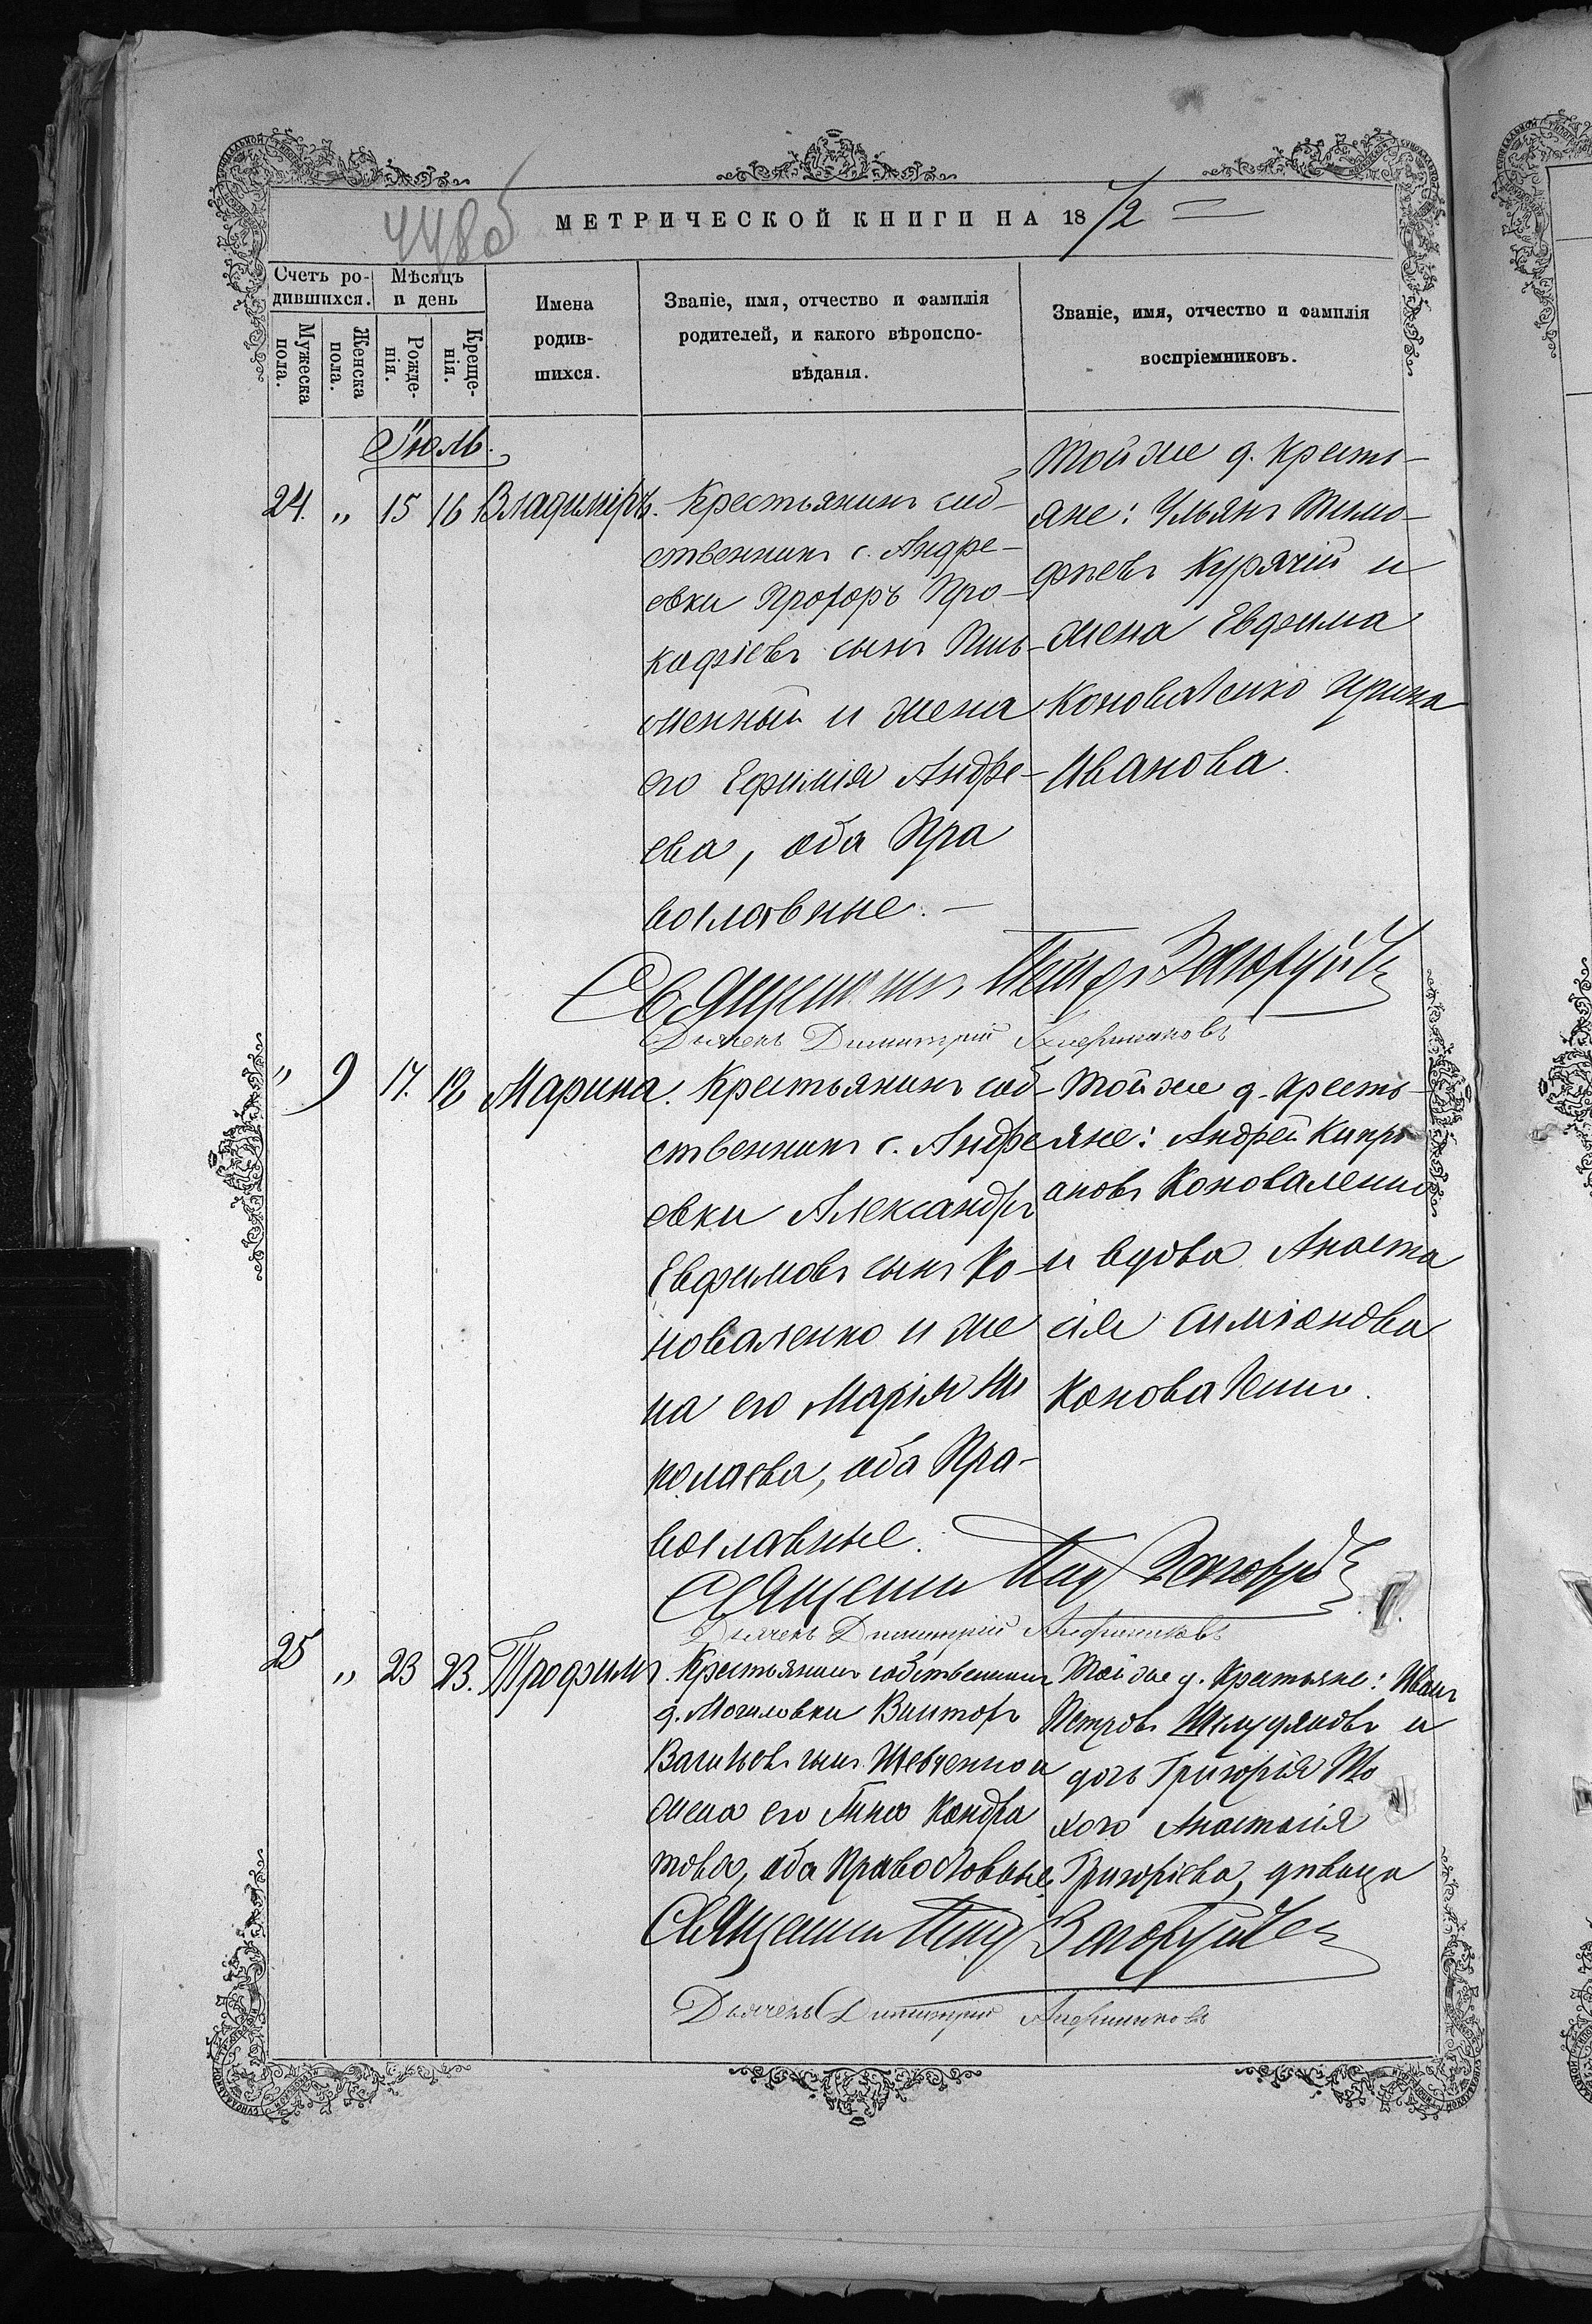 448об
МЕТРИЧЕСКОЙ КНИГИ НА 1872
Счетъ ро-
дившихся.
Мѣсяцъ
и день
Имена
родив-
шихся.
Званіе, имя, отчество и фамилія
родителей, и какого вѣроиспо-
вѣданія.
Званіе, имя, отчество и фамилія
воспріемниковъ.
Мужеска
пола.
Женска
пола.
Рожде-
нія.
Креще-
нія.
Іюль.
24. „ 15 16 Владиміръ.
Крестьянинъ соб-
ственникъ с. Андре-
евки Прохоръ Про-
кофіевъ сынъ
и жена
его Ефимія Андре-
ева, оба Пра
вославные. —
Той же д. Кресть-
яне: Ульянъ Тимо-
фѣевъ Курячій и
жена Евфима
Коноваленко Ирина
Иванова.
Священникъ Петръ
Дьячекъ Димитрій
„ 9 17. 18 Марина.
Крестьянинъ соб-
ственникъ с. Андре
евки Александръ
Евфимовъ сынъ Ко-
новаленко и же
на его Марія Ни
колаева, оба Пра-
вославные.
Той же д. Кресть-
яне: Андрей Кипрі
ановъ Коноваленко
и вдова Анаста
сія Симіонова
Коноваленко.
Священникъ Петръ
Дьячекъ Димитрій
25 „ 23 23. Трофимъ.
Крестьянинъ собственникъ
д. Могиловки Викторъ
Васильевъ сынъ Шевченко и
жена его Анна Кондра
това, оба Православные
Той же д. Крестьяне: Иванъ
Петровъ и
дочь Григорія
Анастасія
Григоріева, дѣвица
Священникъ Петръ
Дьячекъ Димитрій